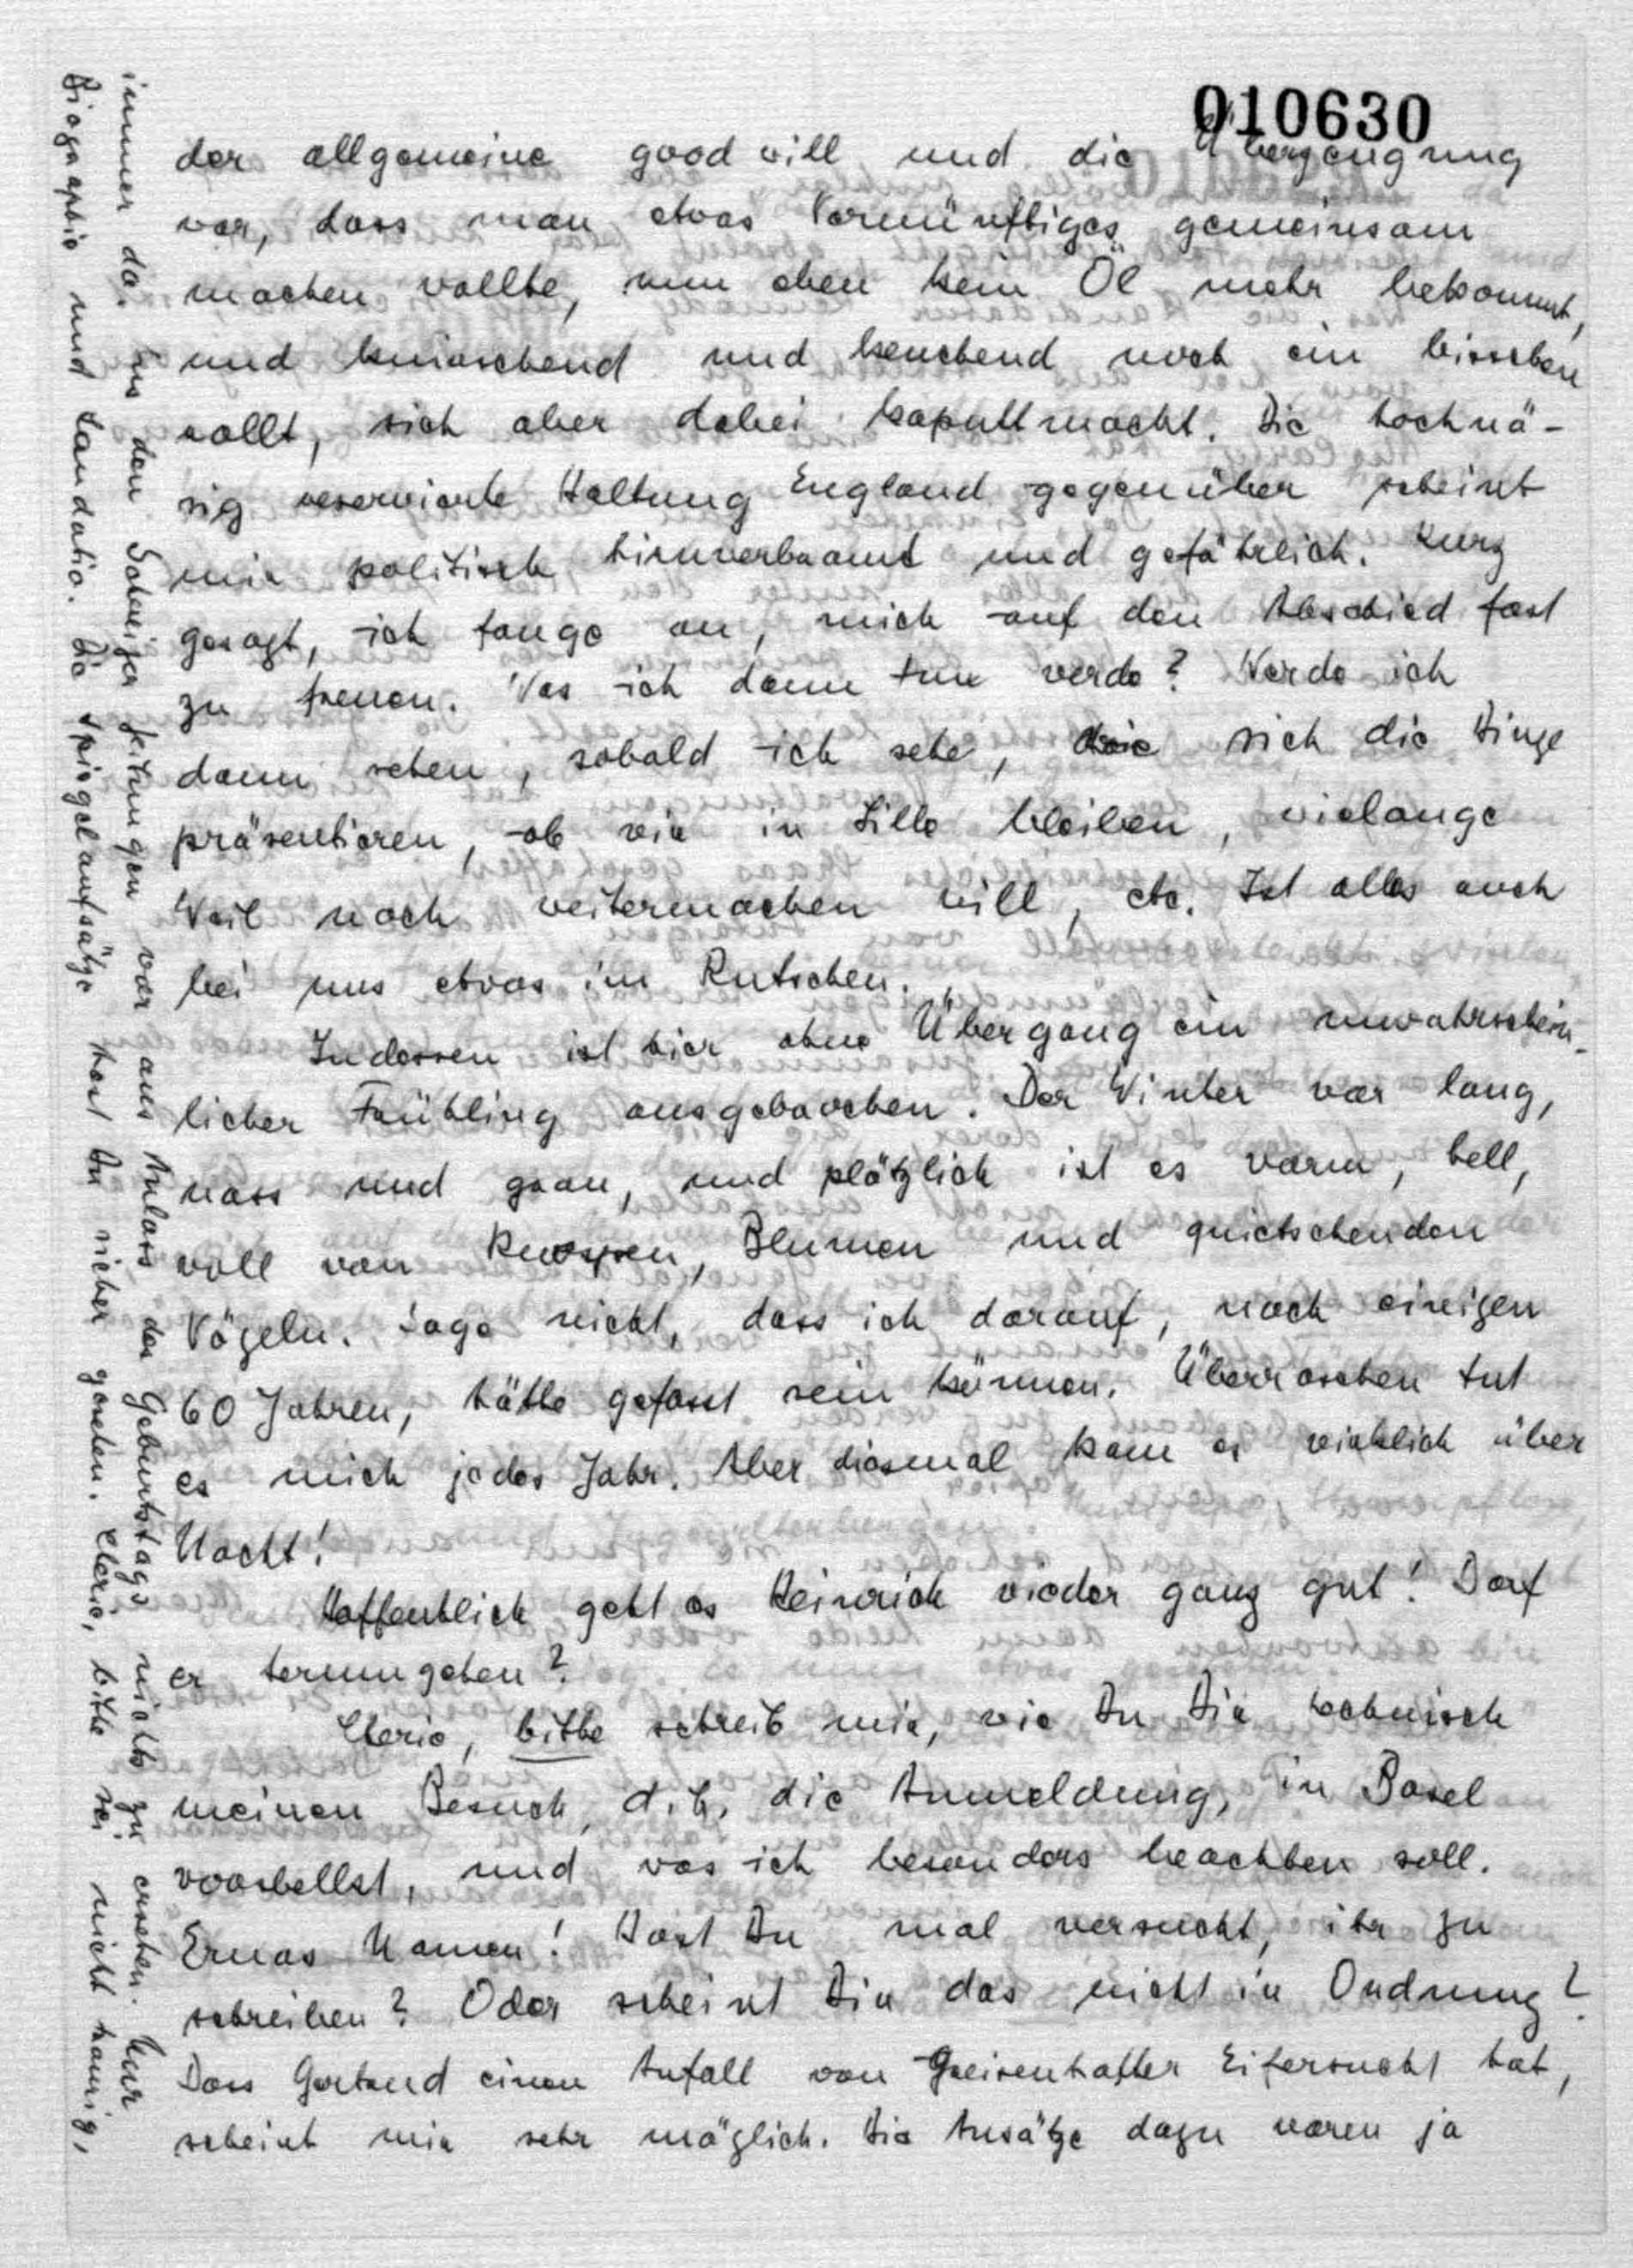 010630
der allgemeine good will und die Überzeugung
war, dass man etwas Vernünftiges gemeinsam
machen wollte, nun eben kein Öl mehr bekommt,
und knirschend und keuchend noch ein bisschen
rollt, sich aber dabei kaputtmacht. Die hochnä-
sig reservierte Haltung England gegenüber scheint
mir politisch hirnverbrannt und gefährlich. Kurz
gesagt, ich fange an, mich auf den Abschied fast
zu freuen. Was ich dann tun werde? Werde ich
dann sehen, sobald ich sehe, wie sich die Dinge
präsentieren, ob wir in Lille bleiben, wielange
Weil noch weitermachen will, etc. Ist alles auch
bei uns etwas im Rutschen.
Indessen ist hier ohne Übergang ein unwahrschein-
licher Frühling ausgebrochen. Der Winter war lang,
nass und grau, und plötzlich ist es warm, hell,
voll von Knospen, Blumen und quietschenden
Vögeln. Sage nicht, dass ich darauf, nach einigen
60 Jahren, hätte gefasst sein können. Überraschen tut
es mich jedes Jahr. Aber diesmal kam es wirklich über
Nacht!
Hoffentlich geht es Heinrich wieder ganz gut! Darf
er herumgehen?
Cherie, bitte schreib mir, wie Du Dir technisch
meinen Besuch, d.h. die Anmeldung, in Basel
vorstellst, und was ich besonders beachten soll.
Ernas Namen! Hast Du mal versucht, ihr zu
schreiben? Oder scheint Dir das nicht in Ordnung?
Dass Gertrud einen Anfall von greisenhafter Eifersucht hat,
scheint mir sehr möglich. Die Ansätze dazu waren ja
immer da. Aus den Schweizer Zeitungen war aus Anlass des Geburtstags nichts zu ersehen. Nur
Biographie und Laudatio. Die Spiegelaufsätze hast Du sicher gesehen. Cherie, bitte sei nicht traurig,